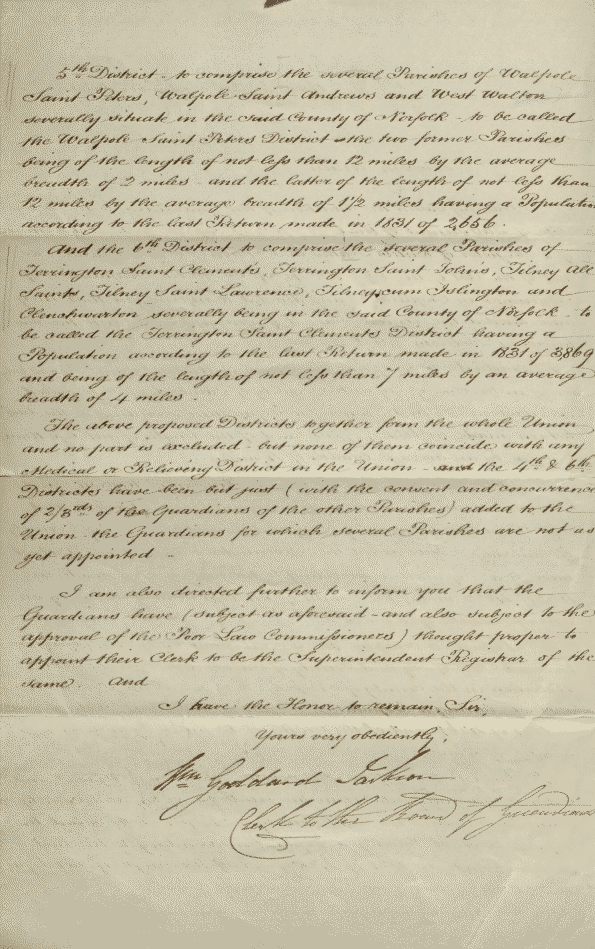 5th District - to comprise the several Parishes of Walpole
Saint Peters, Walpole Saint Andrews and West Walton
severally situate in the said County of Norfolk - to be called
the Walpole Saint Peters District - the two former Parishes
being of the length of not less than 12 miles by the average
breadth of 2 miles - and the latter of the length of not less than
12 miles by the average breadth of 1 1/2 miles having a Population
according to the last Return made in 1831 of 2,656.
And the 6th District to comprise the several Parishes of
Terrington Saint Clements, Terrington Saint Johns, Tilney All
Saints, Tilney Saint Lawrence, Tilney cum Islington and
Clenchwarton severally being in the said County of Norfolk - to
be called the Terrington Saint Clements District having a
Population according to the last Return made in 1831 of 3869
and being of the length of not less than 7 miles by an average
breadth of 4 miles.
The above proposed Districts together form the whole Union
and no part is excluded - but none of them coincide with any
Medical or Relieving District in the Union - and the 4th & 6th
Districts have been but just (with the consent and concurrence
of 2/3rds of the Guardians of the other Parishes) added to the
Union - the Guardians for which several Parishes are not as
yet appointed -
I am also directed further to inform you that the
Guardians have (subject as aforesaid - and also subject to the
approval of the Poor Law Commissioners) thought proper to
appoint their Clerk to be the Superintendent Registrar of the
same. And
I have the Honor to remain, Sir,
Yours very obediently,
Wm Goddard Jackson
Clerk to the Board of Guardians